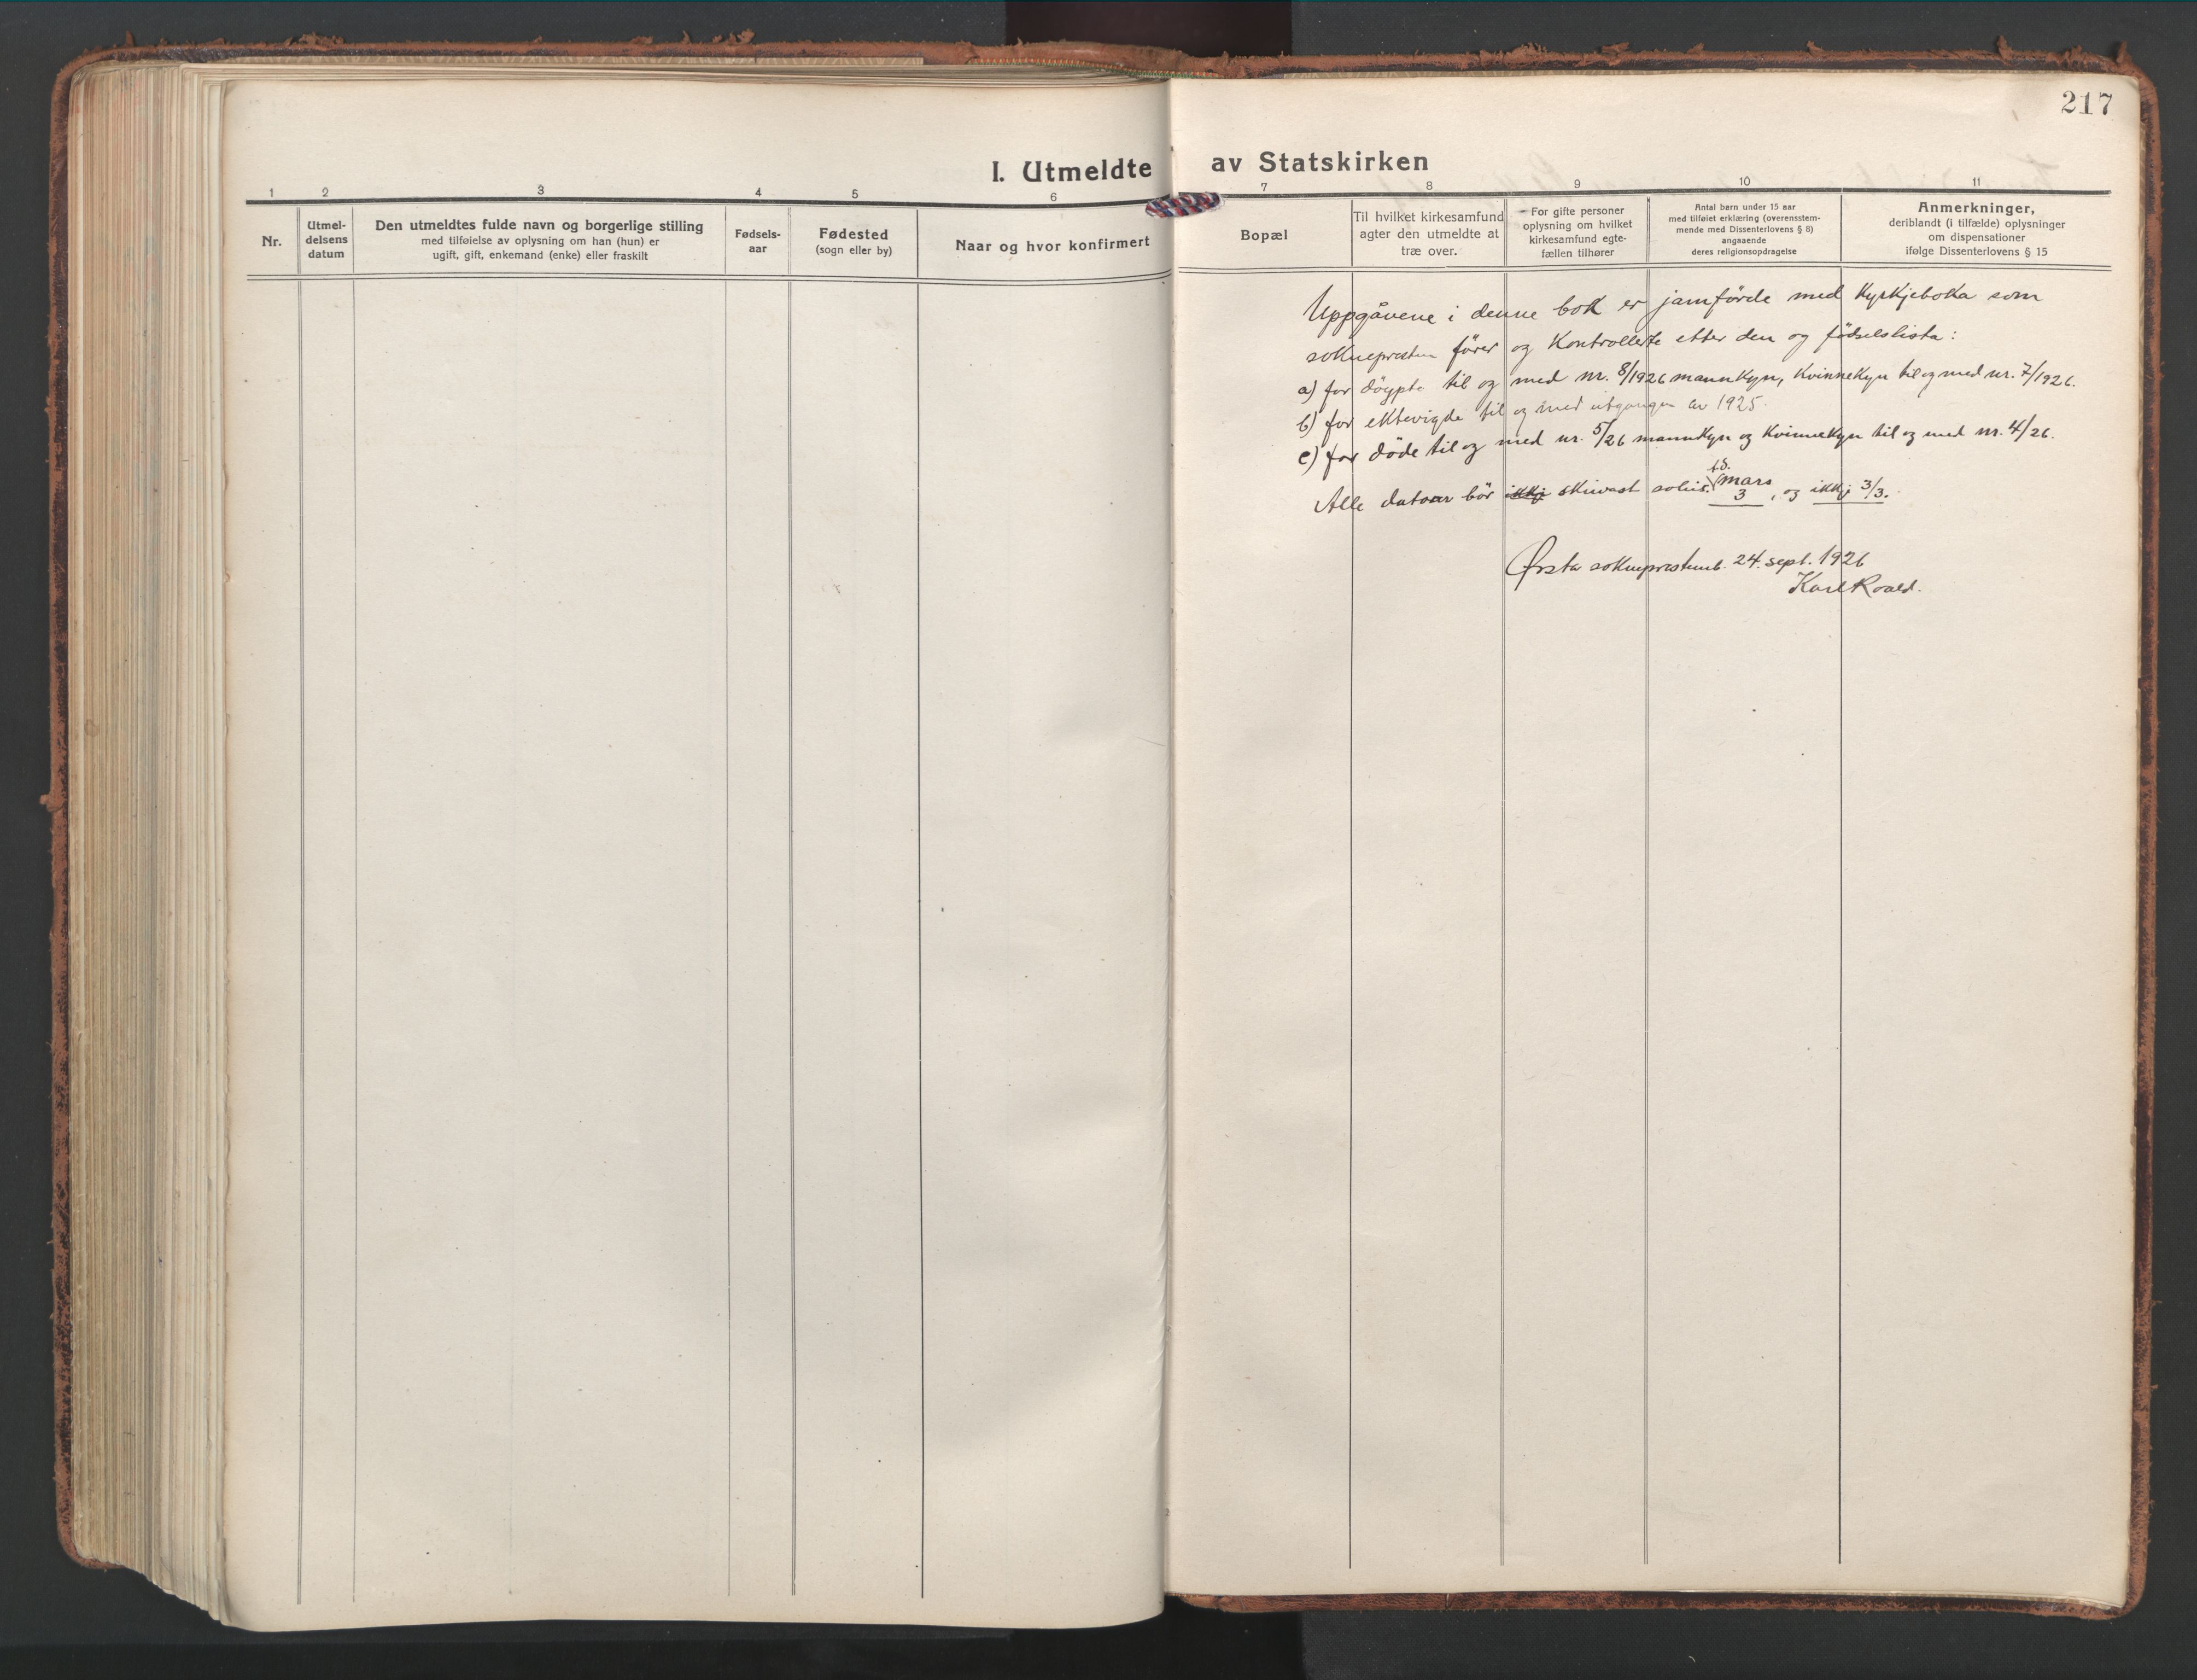 217
I. Utmeldte av Statskirken
1 2 3 4 5 6 7 8 9 10 11
Nr.
Utmel-
delsens
datum
Den utmeldtes fulde navn og borgerlige stilling
med tilføielse av oplysning om han (hun) er
ugift, gift, enkemand (enke) eller fraskilt
Fødsels-
aar
Fødested
(sogn eller by)
Naar og hvor konfirmert
Bopæl
Til hvilket kirkesamfund
agter den utmeldte at
træ over.
For gifte personer
oplysning om hvilket
kirkesamfund egte-
fællen tilhører
Antal barn under 15 aar
med tilføiet erklæring (overensstem-
mende med Dissenterlovens § 8)
angaaende
deres religionsopdragelse
Anmerkninger,
deriblandt (i tilfælde) oplysninger
om dispensationer
ifølge Dissenterlovens § 15
Uppgåvene i denne bok er jamförde med kyrkjeboka som
soknepresten förer og kontrollerte etter den og födselslista:
a) for döypte til og med nr. 8/1926 mannkyn, kvinnekyn til og med nr. 7/1926.
b) for ektevigde til og med utgangen av 1925.
c) for döde til og med nr. 5/26 mannkyn og kvinnekyn til og med nr. 4/26.
t.d.
Alle datoar bör ikkj skrivast soleis: mars
3, og ikkj 3/3.
Ørsta sokneprestemb. 24. sept. 1926
Karl Roald.